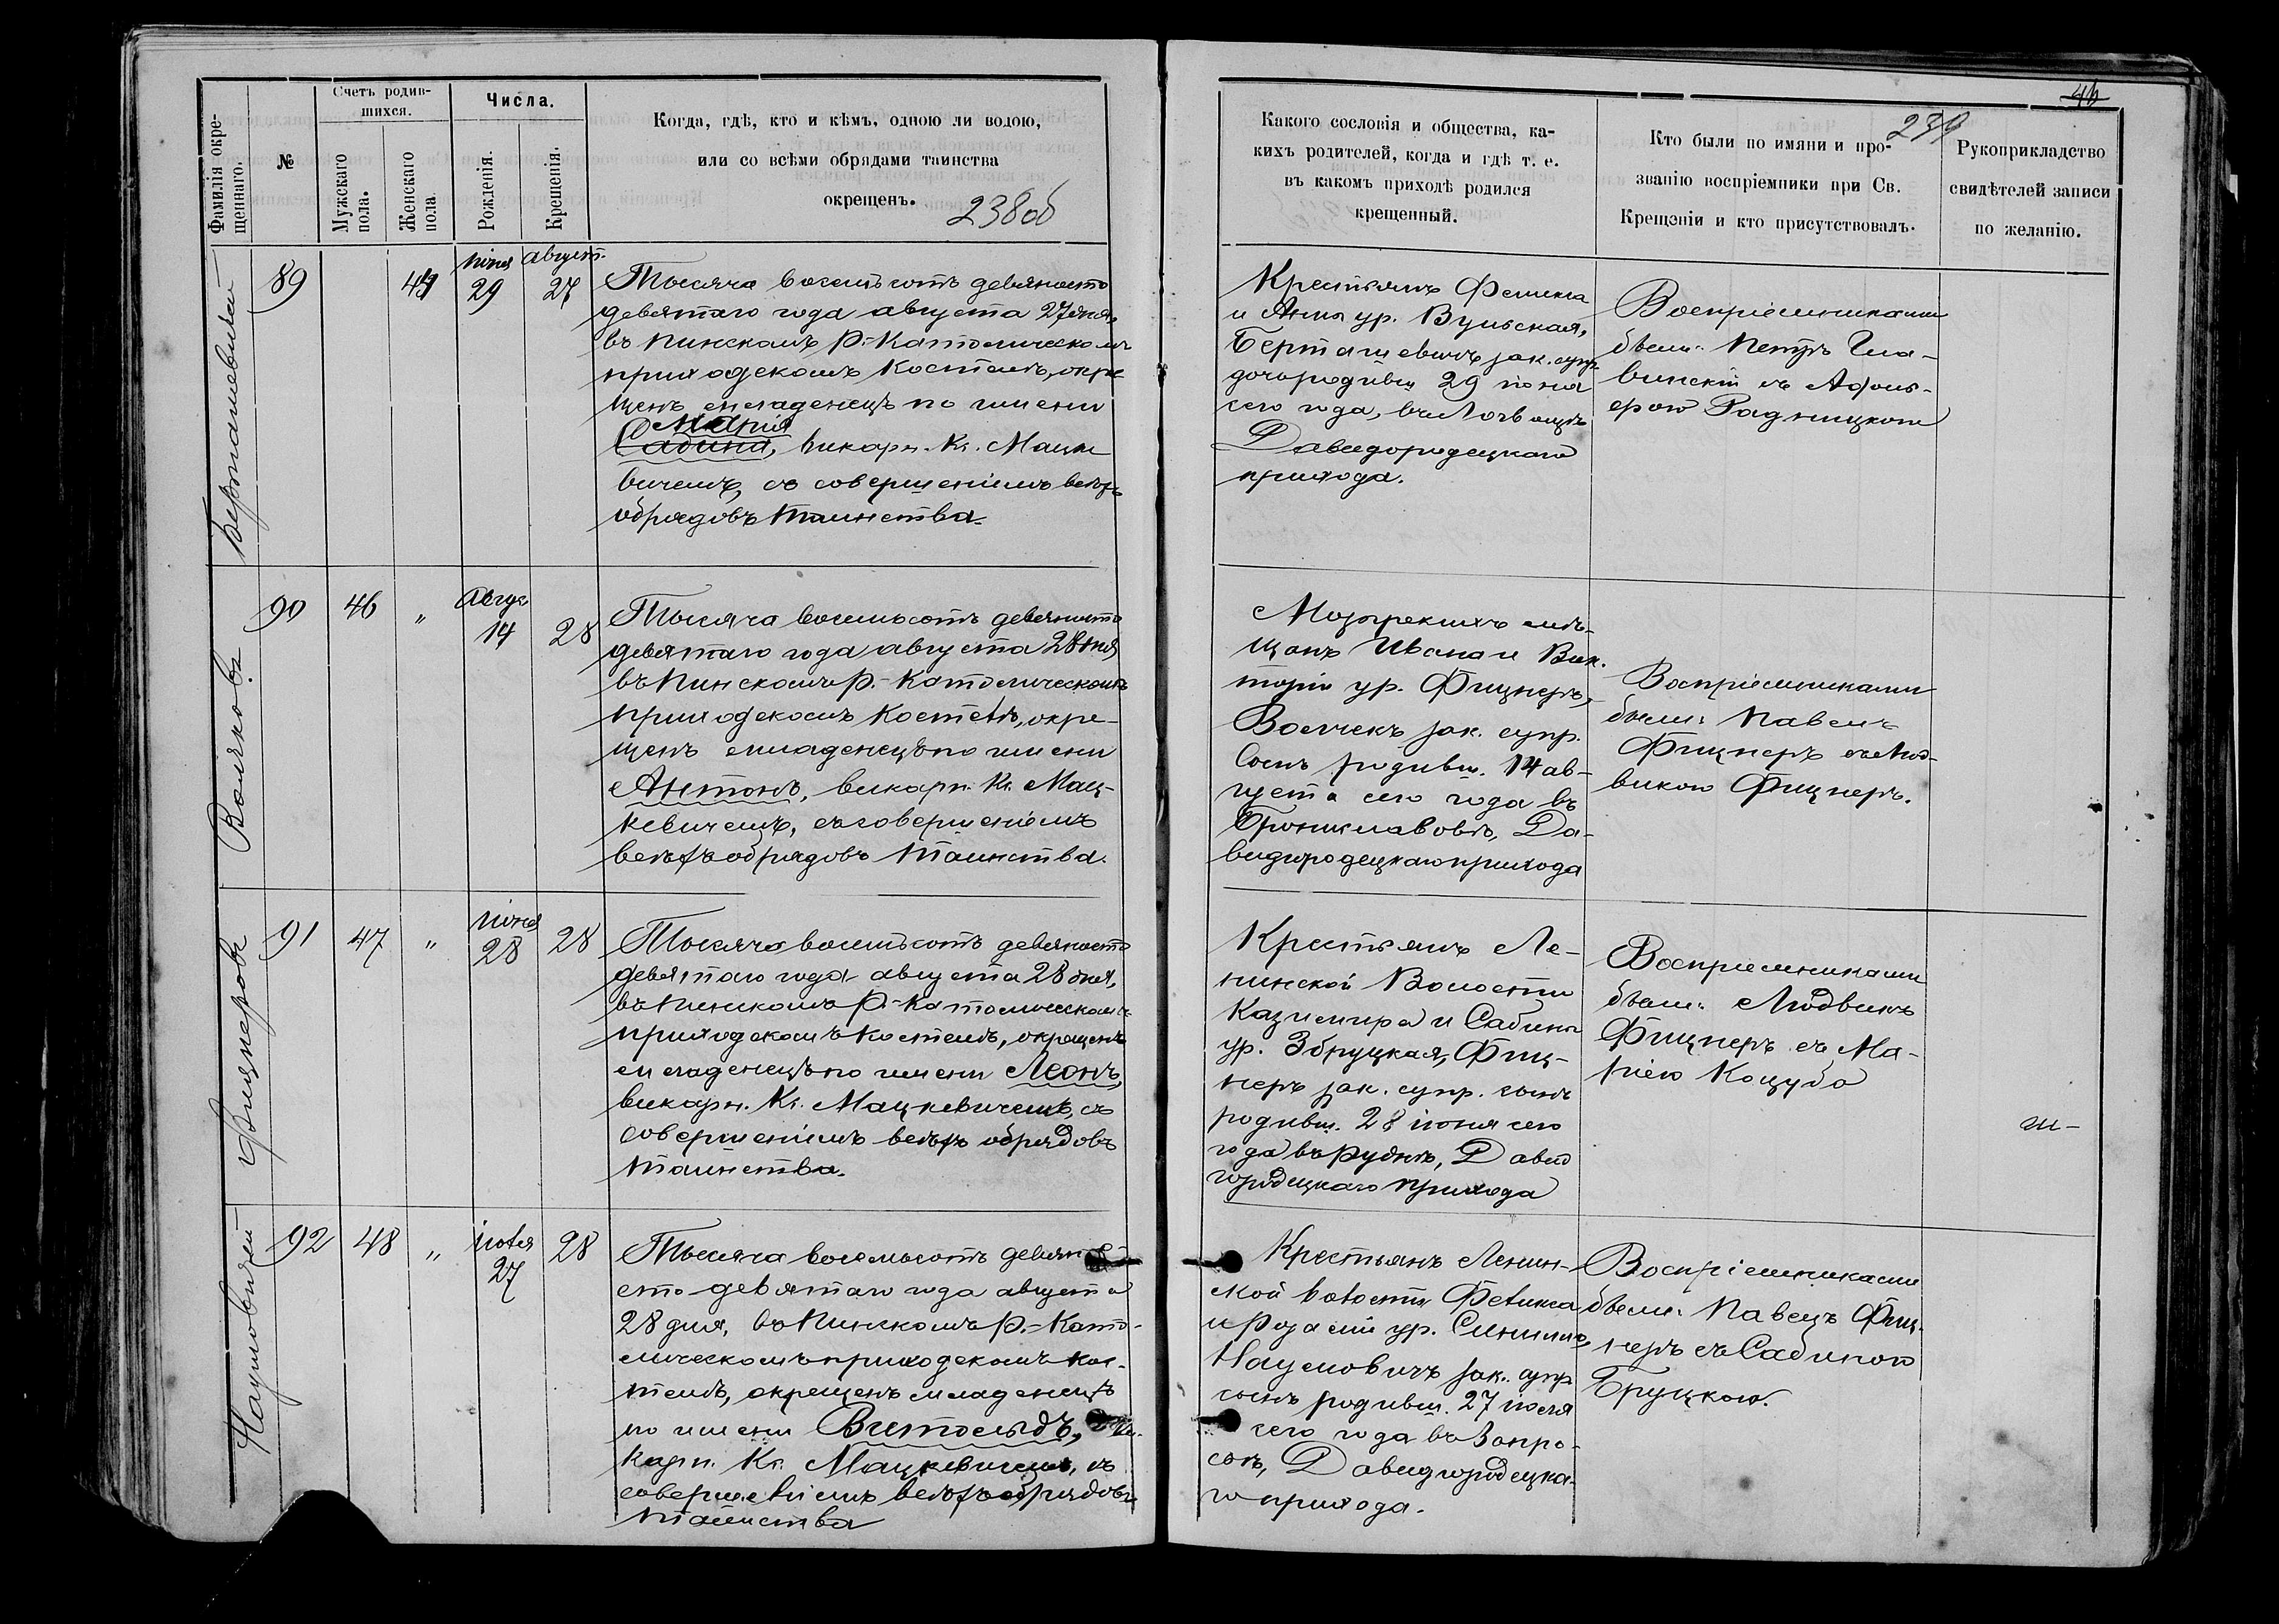 Фамилія окре-
щеннаго.
№
Счетъ родив-
шихся.
Мужскаго
пола.
Женскаго
пола
Числа.
Рожденія.
Крещенія.
Когда, гдѣ, кто и кѣмъ, одною ли водою,
или со всѣми обрядами таинства
окрещенъ.
238об
89
44
іюня
29
август.
27
Тысяча восемьсотъ девяносто
девятаго года августа 27 дня,
въ Пинскомъ Р.-Католическомъ
приходскомъ Костелѣ, окре
щенъ младенецъ по имени
Марія
Сабина, викарн. Кс. Мацке
вичемъ, съ совершеніемъ всѣхъ
обрядовъ таинства.
90
46
„
Авгус
14
28
Волчковъ
Тысяча восемьсотъ девяносто
девятаго года августа 28 дня
въ Пинскомъ Р.-Католическомъ
приходскомъ Костелѣ, окре-
щенъ младенецъ по имени
Антонъ, викарн. Кс. Мац-
кевичемъ, съ совершеніемъ
всѣхъ обрядовъ таинства.
91
47
„
іюня
28
28
Фицнеровъ
Тысяча восемьсотъ девяносто
девятаго года августа 28 дня,
въ Пинскомъ Р.-Католическомъ
приходскомъ Костелѣ, окрещенъ
младенецъ по имени Леонъ,
викарн. Кс. Мацкевичемъ, съ
совершеніемъ всѣхъ обрядовъ
таинства.
92
48
„
іюля
27
28
Наумовичей
Тысяча восемьсотъ девяно
сто девятаго года августа
28 дня, въ Пинскомъ Р.-Като-
лическомъ приходскомъ Кос-
телѣ, окрещенъ младенецъ
по имени Витольдъ, ви-
карн. Кс. Мацкевичемъ, съ
совершеніемъ всѣхъ обрядовъ
таинства
46
239
Какого сословія и общества, ка-
кихъ родителей, когда и гдѣ т. е.
въ какомъ приходѣ родился
крещенный.
Кто были по имяни и про-
званію воспріемники при Св.
Крещеніи и кто присутствовалъ.
Рукоприкладство
свидѣтелей записи
по желанію.
Крестьянъ Феликса
и Анны ур. Вульская,
зак. супр.
дочь родивш 29 іюня
сего года, въ
Давидгородецкаго
прихода.
Воспріемниками
были: Петръ
съ
Радницкою
Мозырскихъ мѣ-
щанъ Ивана и Вик-
торіи ур. Фицнеръ,
Волчекъ зак. супр.
сынъ родивш. 14 ав-
густа сего года въ
Брониславовѣ, Да-
видгородецкаго прихода
Воспріемниками
были: Павелъ
Фицнеръ съ Люд-
викою Фицнеръ.
Крестьянъ Ле-
нинской Волости
Казимира и Сабины
ур. Збруцкая, Фиц-
неръ зак. супр. сынъ
родивш. 28 іюня сего
года въ Руднѣ, Давид
городецкаго прихода
Воспріемниками
были: Людвикъ
Фицнеръ съ Ма-
ріею Коцуба
Крестьянъ Ленин-
ской волости Феликса
и Розаліи ур.
Наумовичъ зак. супр
сынъ родивш. 27 іюля
сего года въ Запро-
сьѣ, Давидгородецка-
го прихода.
Воспріемниками
были: Павелъ Фиц-
неръ съ Сабиною
Бруцкою.